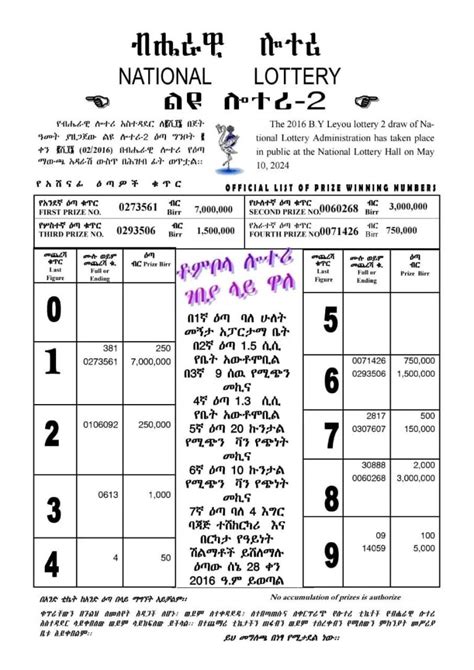 ብሔራዊ ሎተሪ
NATIONAL LOTTERY
ልዩ ሎተሪ-2
የብሔራዊ ሎተሪ አስተዳደር
ዓመት ያዘጋጀው ልዩ ሎተሪ-2 ዕጣ ግንቦት 2
ቀን (02/2016) በብሔራዊ ሎተሪ የዕጣ
ማውጫ አዳራሽ ውስጥ በሕዝብ ፊት ወጥቷል።
The 2016 B.Y Leyou lottery 2 draw of Na-
tional Lottery Administration has taken place
in public at the National Lottery Hall on May
10, 2024
የአሸናፊ ዕጣዎች ቁጥር
OFFICIAL LIST OF PRIZE WINNING NUMBERS
የአንደኛ ዕጣ ቁጥር ብር
FIRST PRIZE NO. 0273561 Birr 7,000,000
የሁለተኛ ዕጣ ቁጥር ብር
SECOND PRIZE NO. 0060268 Birr 3,000,000
የሦስተኛ ዕጣ ቁጥር ብር
THIRD PRIZE NO. 0293506 Birr 1,500,000
የአራተኛ ዕጣ ቁጥር ብር
FOURTH PRIZE NO. 0071426 Birr 750,000
መጨረሻ ቁጥር Last Figure
ሙሉ ወይም መጨረሻ ቁ. Full or Ending
ዕጣ ብር Prize Birr
0
1
381 250
0273561 7,000,000
2
0106092 250,000
3
0613 1,000
4
4 50
ቶምቦላ ሎተሪ
ገበያ ላይ ዋለ
በ1ኛ ዕጣ ባለ ሁለት
መኝታ አፓርታማ ቤት
በ2ኛ ዕጣ 1.5 ሲሲ
የቤት አውቶሞቢል
በ3ኛ 9 ሰዉ የሚጭን
መኪና
4ኛ ዕጣ 1.3 ሲሲ
የቤት አውቶሞቢል
5ኛ ዕጣ 20 ኩንታል
የሚጭን ቫን የጭነት
መኪና
6ኛ ዕጣ 10 ኩንታል
የሚጭን ቫን የጭነት
መኪና
7ኛ ዕጣ ባለ 4 እግር
ባጃጅ ተሽከርካሪ እና
በርካታ የዓይነት
ሽልማቶች ይሸለማሉ
ዕጣው ሰኔ 28 ቀን
2016 ዓ.ም ይወጣል
መጨረሻ ቁጥር Last Figure
ሙሉ ወይም መጨረሻ ቁ. Full or Ending
ዕጣ ብር Prize Birr
5
6
0071426 750,000
0293506 1,500,000
7
2817 500
0307607 150,000
8
30888 2,000
0060268 3,000,000
9
09 100
14059 5,000
በአንድ ቲኬት ከአንድ ዕጣ በላይ ማግኘት አይቻልም።
No accumulation of prizes is authorize
ይህ መግለጫ በነፃ የሚታደል ነው።